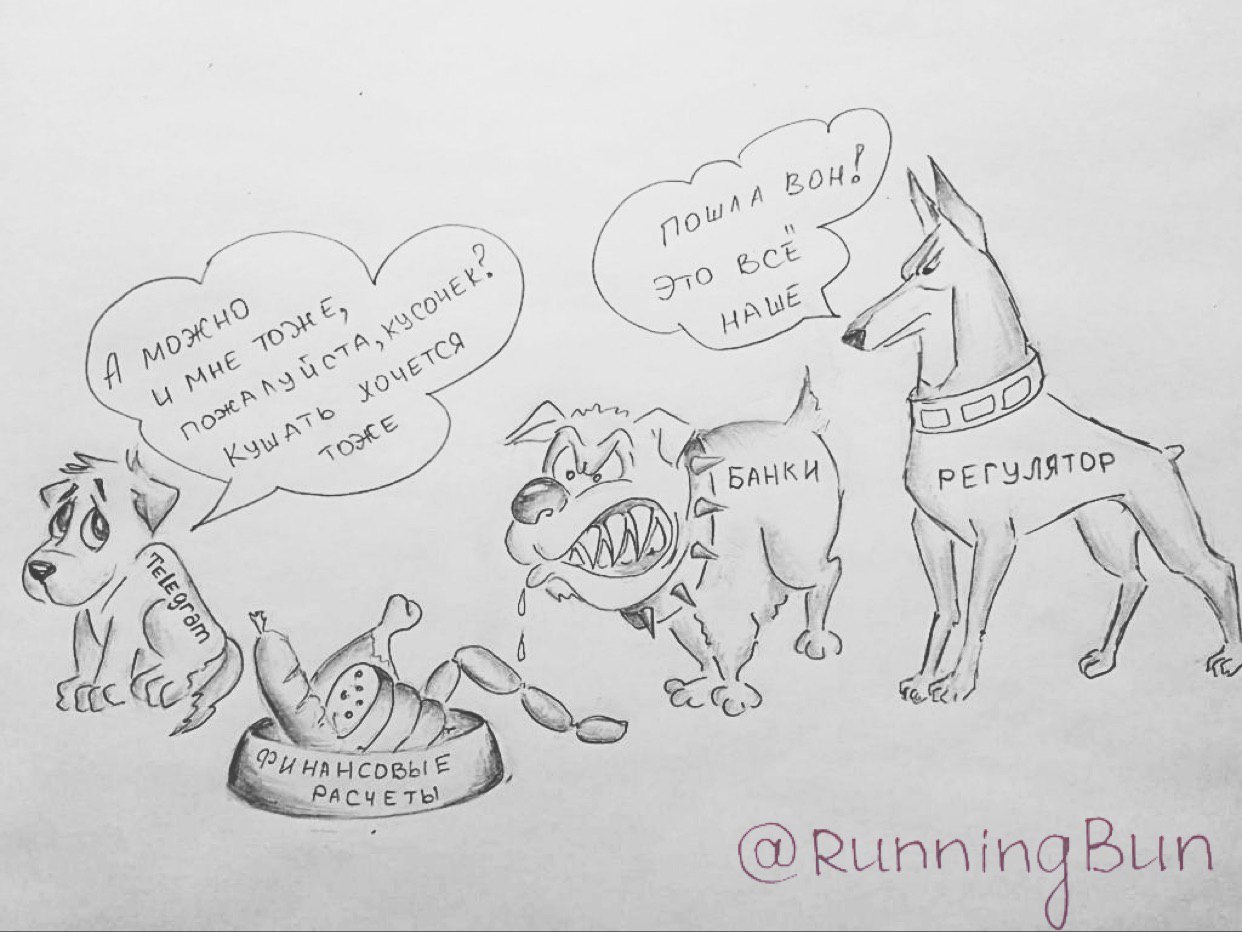 А МОЖНО
И МНЕ ТОЖЕ,
ПОЖАЛУЙСТА, КУСОЧЕК?
КУШАТЬ ХОЧЕТСЯ
ТОЖЕ
ПОШЛА ВОН!
ЭТО ВСЁ"
НАШЕ
Telegram
БАНКИ
РЕГУЛЯТОР
ФИНАНСОВЫЕ
РАСЧЕТЫ
@RunningBun